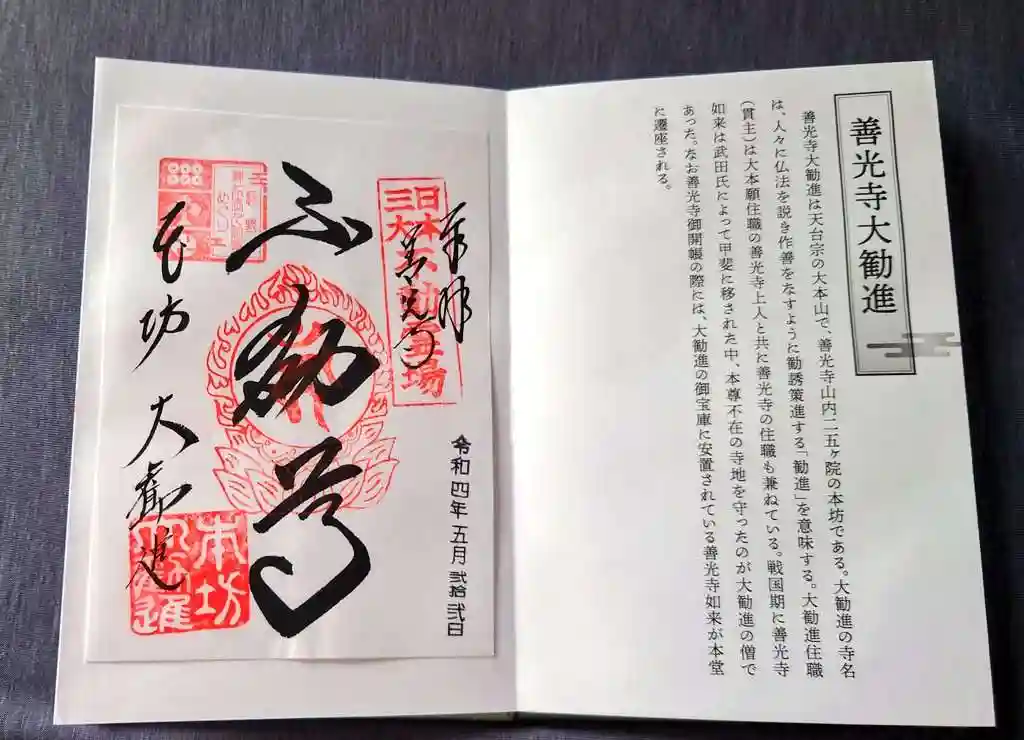 善光寺大勧進
善光寺大勧進は天台宗の大本山で、善光寺山内二五ヶ院の本坊である。大勧進の寺名
は、人々に仏法を説き作善をなすように勧誘策進する「勧進」を意味する。大勧進住職
(貫主)は大本願住職の善光寺上人と共に善光寺の住職も兼ねている。戦国期に善光寺
如来は武田氏によって甲斐に移された中、本尊不在の寺地を守ったのが大勧進の僧で
あった。なお善光寺御開帳の際には、大勧進の御宝庫に安置されている善光寺如来が本堂
に遷座される。
奉拝
善光寺
日本
三大
不動霊場
令和四年五月弐拾弐日
不動尊
本坊
大勧進
大勧進